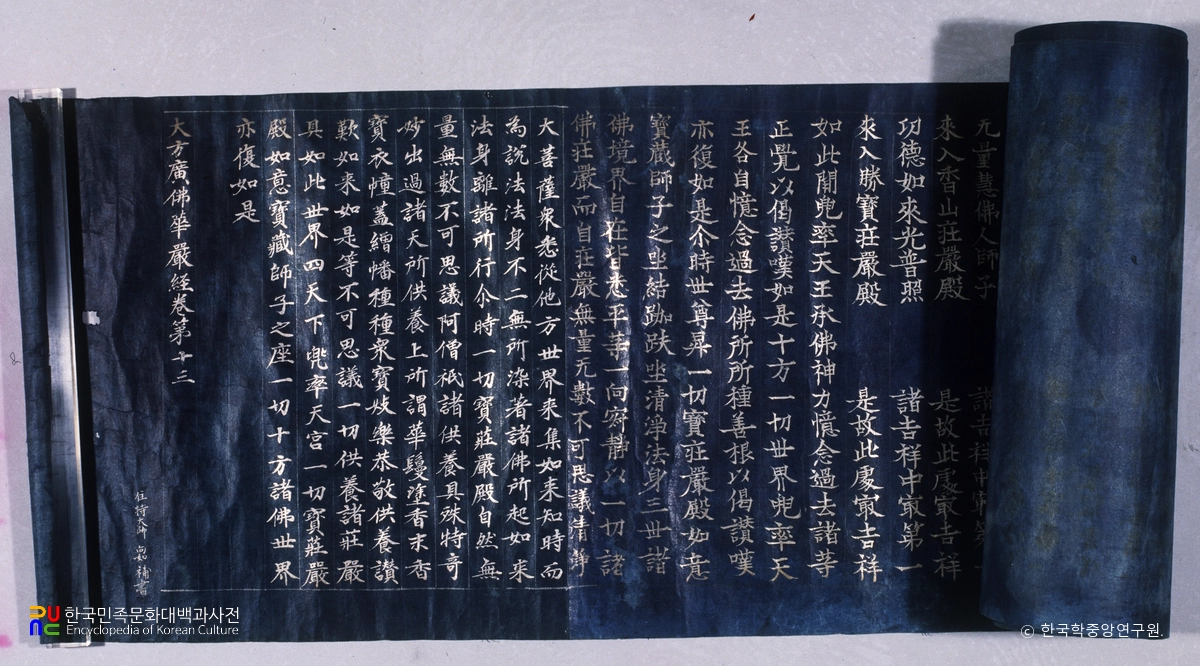 无量慧佛人師子 諸吉祥中㝡第一
來入香山莊嚴殿 是故此處㝡吉祥
功德如來光普照 諸吉祥中㝡第一
來入勝寶莊嚴殿 是故此處㝡吉祥
如此閻兜率天王承佛神力憶念過去諸等
正覺以偈讃嘆如是十方一切世界兜率天
王各自憶念過去佛所所種善根以偈讃嘆
亦復如是尒時世尊昇一切寶莊嚴殿如意
寶藏師子之坐結跏趺坐清淨法身三世諸
佛境界自在皆悉平等一向寂靜以一切諸
佛莊嚴而自莊嚴無量无數不可思議清淨
大菩薩衆悉從他方世界来集如来知時而
為說法法身不二無所染著諸佛所起如来
法身離諸所行尒時一切寶莊嚴殿自然無
量無數不可思議阿僧祇諸供養具殊特奇
妙出過諸天所供養上所謂華鬘塗香末香
寶衣幢蓋繒幡種種衆寶妓樂恭敬供養讃
歎如来如是等不可思議一切供養諸莊嚴
具如此世界四天下兜率天宮一切寶莊嚴
殿如意寶藏師子之座一切十方諸佛世界
亦復如是
大方廣佛華嚴經卷第十三
住持大師 補書
PUNC 한국민족문화대백과사전
Encyclopedia of Korean Culture
© 한국학중앙연구원.